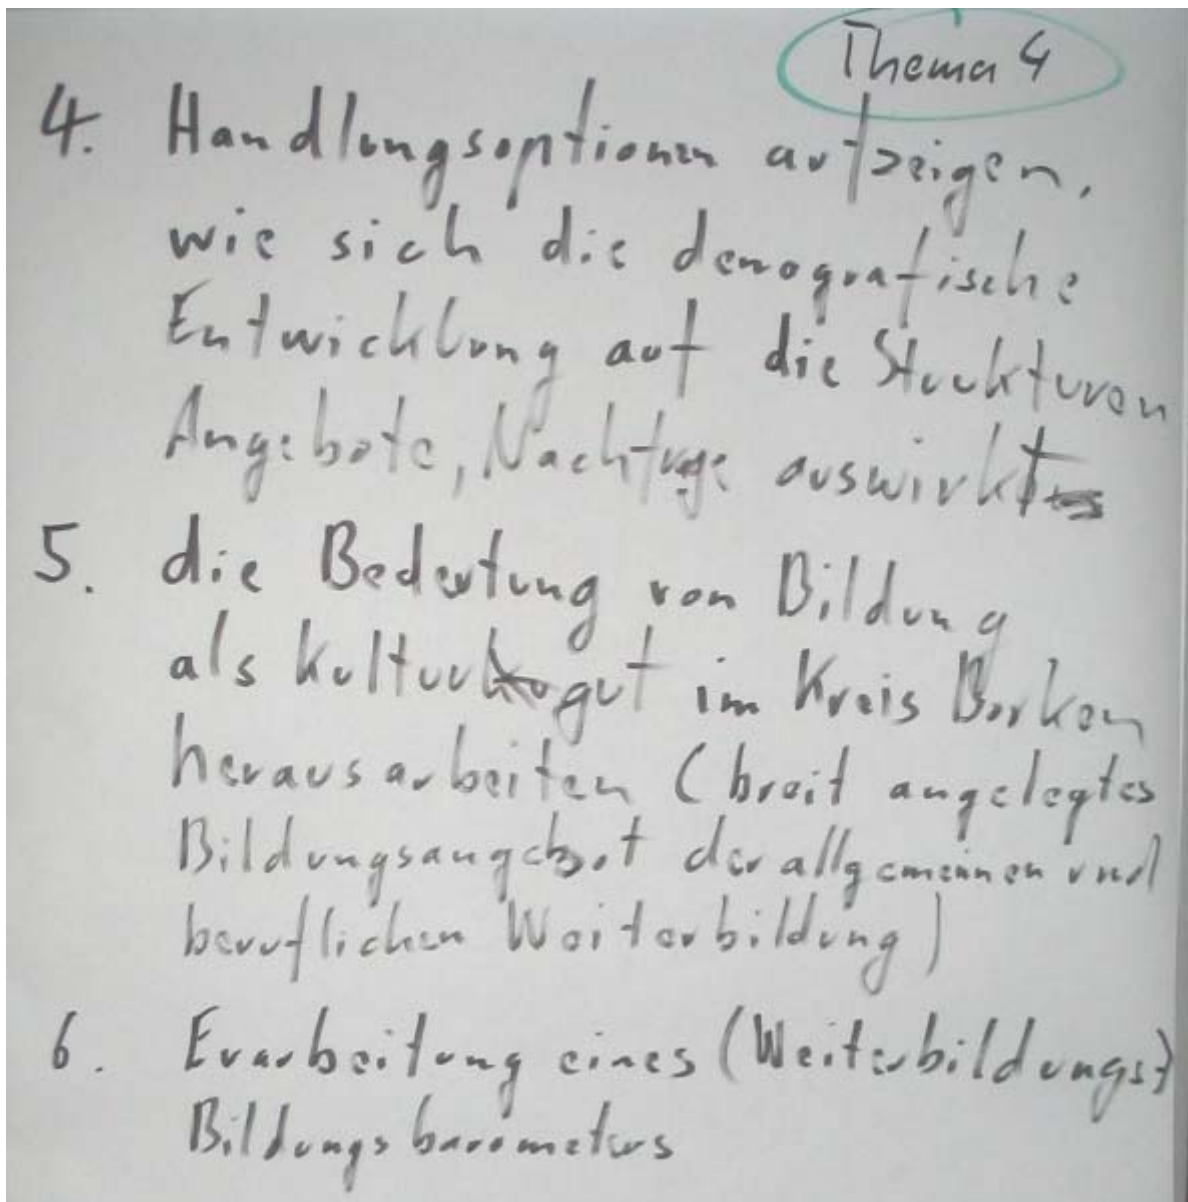 Thema 4
4. Handlungsoptionen aufzeigen,
wie sich die demografische
Entwicklung auf die Strukturen
Angebote, Nachfrage auswirkt
5. die Bedeutung von Bildung
als Kulturgut im Kreis Borken
herausarbeiten (breit angelegtes
Bildungsangebot der allgemeinen und
beruflichen Weiterbildung)
6. Erarbeitung eines (Weiterbildungs-)
Bildungsbarometers